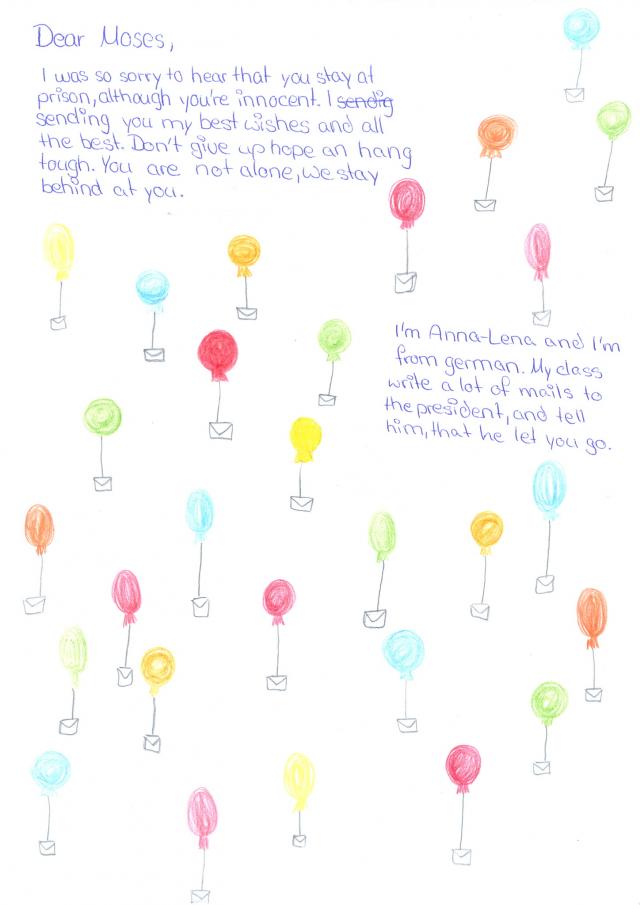 Dear Moses,
I was so sorry to hear that you stay at
prison, although you're innocent. I sendig
sending you my best wishes and all
the best. Don't give up hope an hang
tough. You are not alone, we stay
behind at you.
I'm Anna-Lena and I'm
from german. My class
write a lot of mails to
the president, and tell
him, that he let you go.